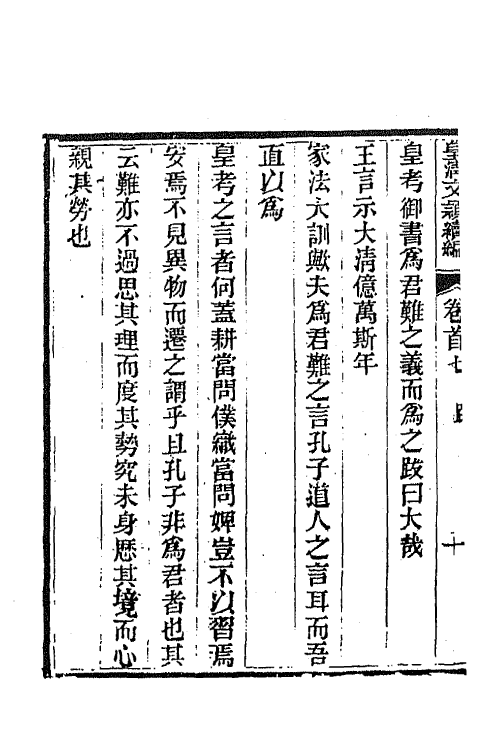 皇清文頴續編 卷首七 跋 十
皇考御書爲君難之義而爲之跋曰大哉
王言示大清億萬斯年
家法大訓歟夫爲君難之言孔子道人之言耳而吾
直以爲
皇考之言者何蓋耕當問僕織當問婢豈不以習焉
安焉不見異物而遷之謂乎且孔子非爲君者也其
云難亦不過思其理而度其勢究未身歷其境而心
親其勞也